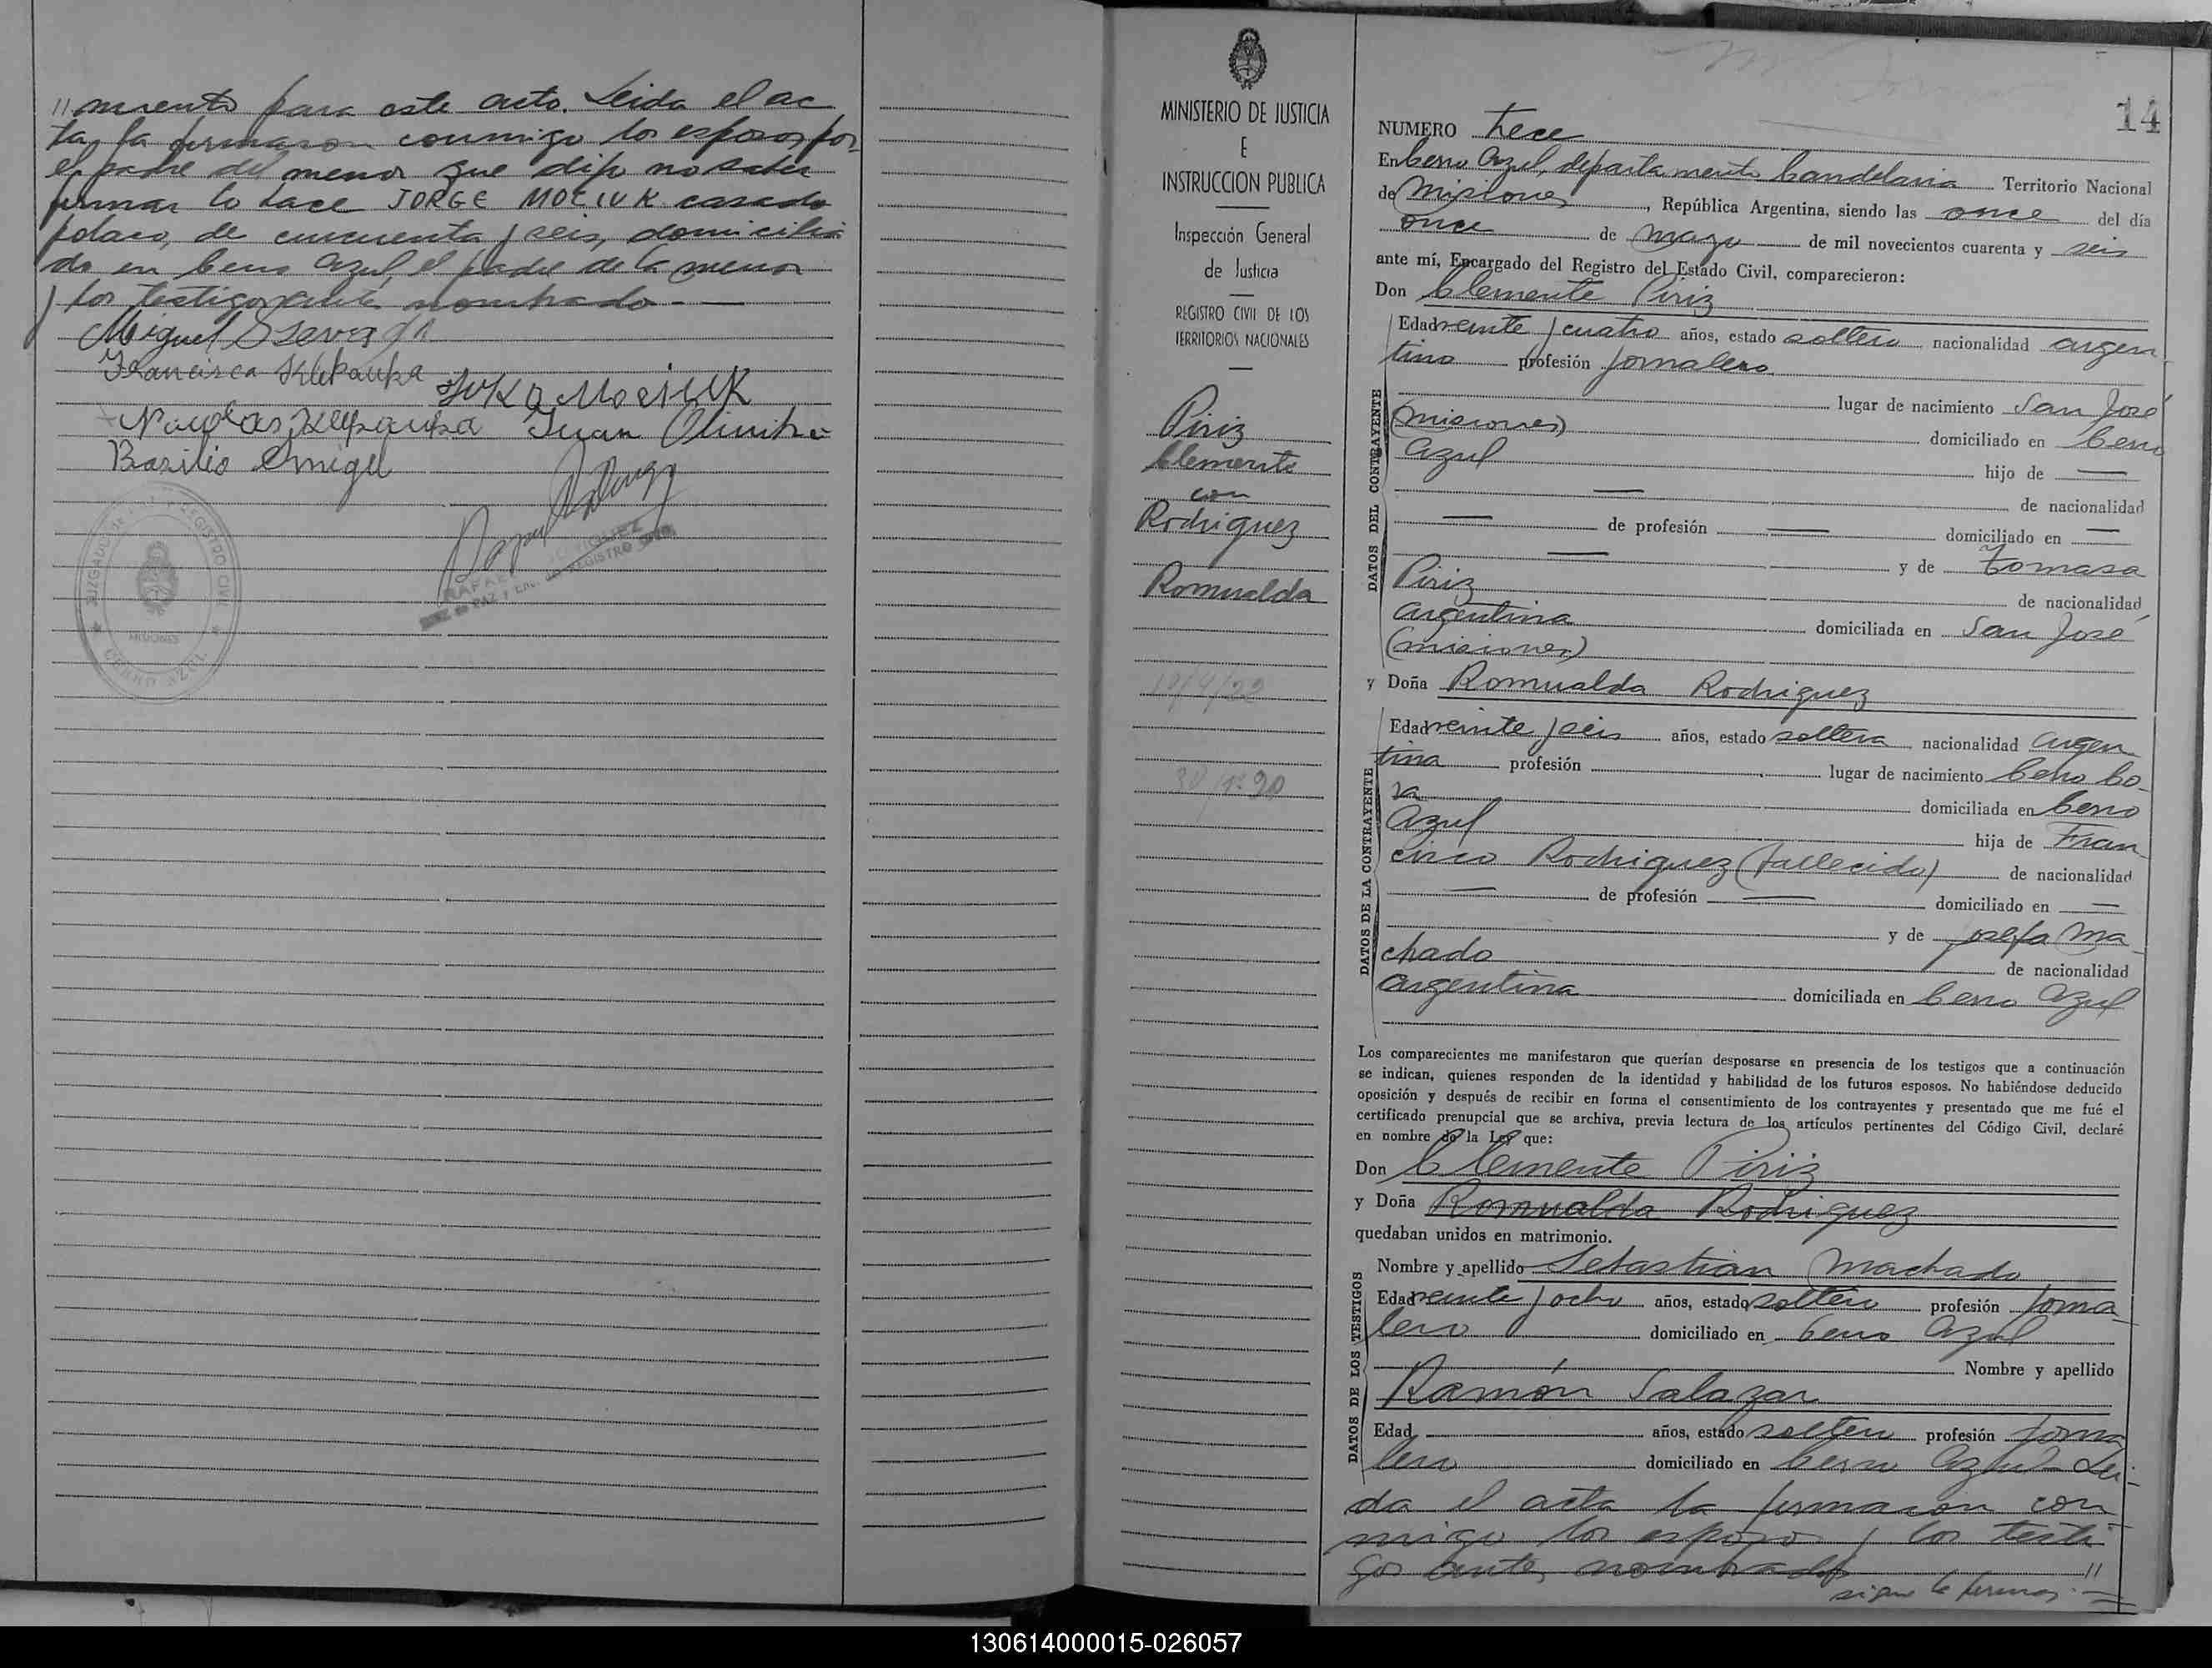 // miento para este acto. Leida el ac
ta, la firmaron conmigo los esposos, por
el padre del menor que dijo no saber
firmar lo hace JORGE MOCIUK casado
polaco, de cincuenta y seis, domicilia
do en Cerro Azul, el padre de la menor
y los testigos antes nombrados.
Miguel
Francisca Klepauka
Juan
Basilio
JUZGADO DE PAZ Y REGISTRO CIVIL
MISIONES
CERRO AZUL
RAFAEL
JUEZ DE PAZ Y ENC. DEL REGISTRO CIVIL
MINISTERIO DE JUSTICIA
E
INSTRUCCION PUBLICA
Inspección General
de Justicia
REGISTRO CIVIL DE LOS
TERRITORIOS NACIONALES
Piriz
Clemente
con
Rodriguez
Romualda
14
NUMERO trece
En Cerro Azul, departamento Candelaria Territorio Nacional
de Misiones, República Argentina, siendo las once del día
once de mayo de mil novecientos cuarenta y seis
ante mí, Encargado del Registro del Estado Civil, comparecieron:
Don Clemente Piriz
DATOS DEL CONTRAYENTE
Edad veinte y cuatro años, estado soltero nacionalidad argen
tino profesión jornalero
lugar de nacimiento San José
(misiones) domiciliado en Cerro
Azul hijo de —
— de nacionalidad
— de profesión — domiciliado en —
— y de Tomasa
Piriz de nacionalidad
argentina domiciliada en San José
(misiones)
y Doña Romualda Rodriguez
DATOS DE LA CONTRAYENTE
Edad veinte y seis años, estado soltera nacionalidad argen
tina profesión lugar de nacimiento Cerro Co-
rá domiciliada en Cerro
Azul hija de Fran
cisco Rodriguez (fallecido) de nacionalidad
— de profesión — domiciliado en —
y de josefa Ma
chado de nacionalidad
argentina domiciliada en Cerro Azul
Los comparecientes me manifestaron que querían desposarse en presencia de los testigos que a continuación
se indican, quienes responden de la identidad y habilidad de los futuros esposos. No habiéndose deducido
oposición y después de recibir en forma el consentimiento de los contrayentes y presentado que me fué el
certificado prenupcial que se archiva, previa lectura de los artículos pertinentes del Código Civil, declaré
en nombre de la Ley que:
Don Clemente Piriz
y Doña Romualda Rodriguez
quedaban unidos en matrimonio.
DATOS DE LOS TESTIGOS
Nombre y apellido Sebastian Machado
Edad veinte y ocho años, estado soltero profesión jorna-
lero domiciliado en Cerro Azul
Nombre y apellido
Ramón Salazar
Edad — años, estado soltero profesión jorna
lero domiciliado en Cerro Azul - Lei-
da el acta la firmaron con
migo los esposos y los testi
gos antes nombrados //
sigue la firmas
130614000015-026057